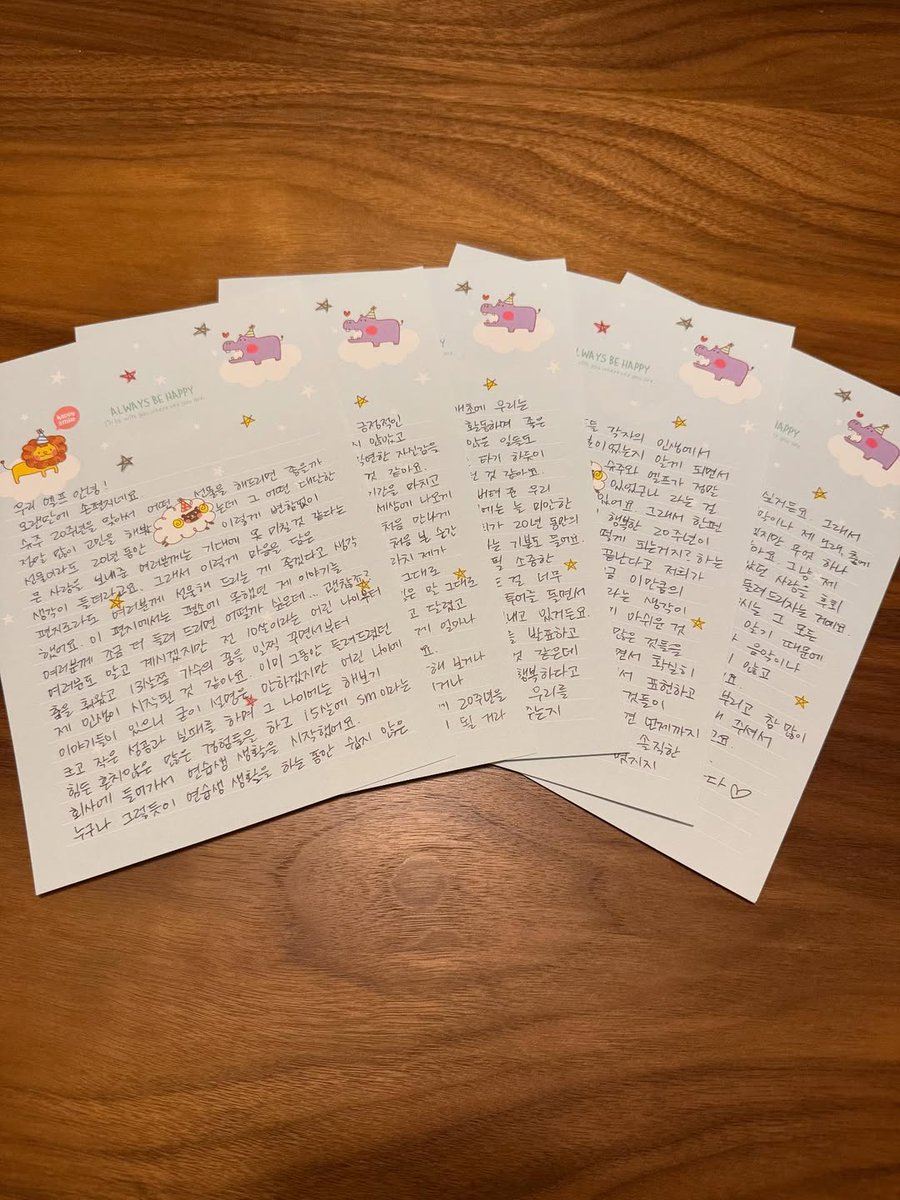 happy smile
ALWAYS BE HAPPY
I'll be with you wherever you are.
우리 엘프 안녕!
오랜만에 손편지네요.
슈주 20주년을 맞아서 어떤 선물을 해드리면 좋을까
정말 많이 고민을 해봤 는데 그 어떤 대단한
선물이라도 20년 동안 이렇게 변함없이
큰 사랑을 보내준 여러분께는 기대에 못 미칠것 같다는
생각이 들더라고요. 그래서 이렇게 마음을 담은
편지로라도 여러분께 선물해 드리는 게 좋겠다고 생각
했어요. 이 편지에서는 평소에 못했던 제 이야기를
여러분께 조금 더 들려 드리면 어떨까 싶은데... 괜찮죠?
여러분도 알고 계시겠지만 전 10살이라는 어린 나이부터
춤을 춰왔고 13살쯤 가수의 꿈을 일찍 꾸면서부터
제 인생이 시작된 것 같아요. 이미 그동안 들려드렸던
이야기들이 있으니 굳이 설명은 안하겠지만 어린 나이에
크고 작은 성공과 실패를 하며 그 나이에는 해보기
힘든 흔치않은 많은 경험들을 하고 15살에 SM이라는
회사에 들어가서 연습생 생활을 시작했어요.
누구나 그렇듯이 연습생 생활을 하는 동안 쉽지 않은
긍정적인
시 않았고
연한 자신감을
것 같아요.
기간을 마치고
세상에 나오게
처음 만나게
처음 본 순간
라치 제가
그대로
은 말 그대로
고 달렸고
게 얼마나
요.
해 보거나
거나
20주년을
될 거라
개초에 우리는
활동하며 좋은
않은 일들도
타기 하듯이
것 같아요.
버텨 준 우리
에는 늘 미안한
가 20년 동안의
는 기분도 들어요.
소중한
걸 너무
투어를 돌면서
내고 있거든요.
발표하고
것 같은데
행복하다고
우리를
주는지
ALWAYS BE HAPPY
을 각자의 인생에서
이 있는지 알게 되면서
슈주와 엘프가 정말
있었구나 라는 걸
있어요. 그래서 한편
행복한 20주년이
떻게 하는거지? 하는
끝난다고 저희가
금 이만큼의
라는 생각이
아쉬운 것
많은 것들을
면서 확실히
서 표현하고
것들이
건 언제까지
솔직한
없지
HAPPY
싶거든요. 그래서
악이나 제 노래, 춤에
있지만 무엇 하나
아요. 그냥 제
있던 사랑을 후회
돌려드리자는 거예요.
시는 그 모든
알기 때문에
음악이나
않고
부리고 참 많이
내 주셔서
다♡